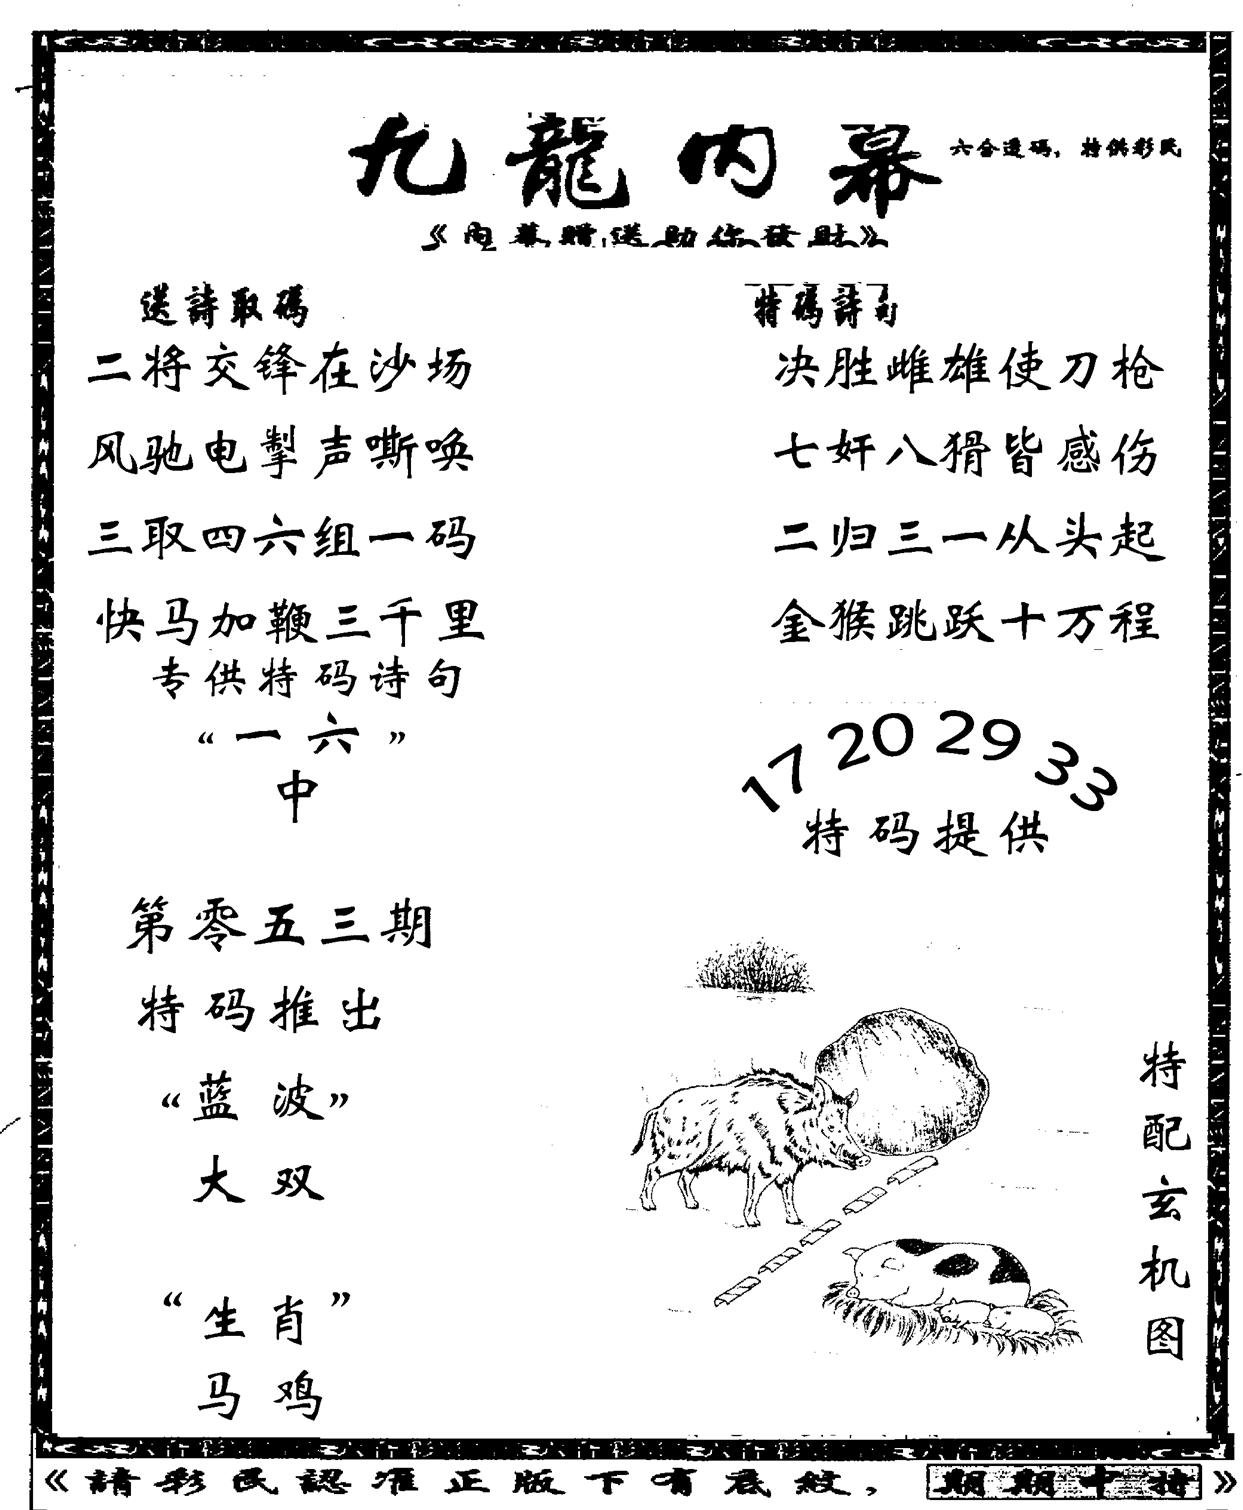 九龍内幕
六合透码，特供彩民
《内幕贈送助你發財》
送詩取碼
二将交锋在沙场
风驰电掣声嘶唤
三取四六组一码
快马加鞭三千里
专供特码诗句
“一六”
中
第零五三期
特码推出
“蓝波”
大双
“生肖”
马鸡
特碼詩句
决胜雌雄使刀枪
七奸八猾皆感伤
二归三一从头起
金猴跳跃十万程
17 20 29 33
特码提供
特配玄机图
《請彩民認准正版下有底紋，期期中特》